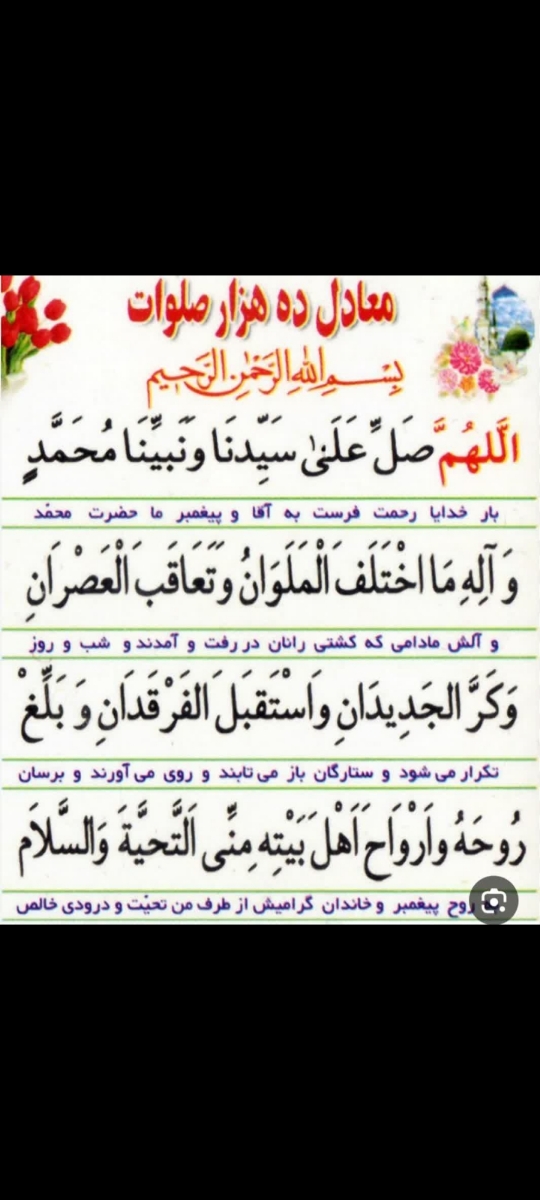 معادل ده هزار صلوات
بِسْمِ اللهِ الرَّحْمٰنِ الرَّحيمِ
اَللّٰهُمَّ صَلِّ عَلَىٰ سَيِّدِنَا وَنَبيِّنَا مُحَمَّدٍ
بار خدایا رحمت فرست به آقا و پیغمبر ما حضرت محمّد
وَ آلِهِ مَا اخْتَلَفَ الْمَلَوَانُ وَتَعَاقَبَ الْعَصْرَانِ
و آلش مادامی که کشتی رانان در رفت و آمدند و شب و روز
وَكَرَّ الجَدِيدَانِ وَاسْتَقبَلَ الفَرْقَدَانِ وَ بَلِّغْ
تکرار می شود و ستارگان باز می تابند و روی می آورند و برسان
رُوحَهُ وَاَرْوَاحَ اَهْلَ بَيْتِهِ مِنِّى اَلتَّحيَّةَ وَالسَّلاَم
روح پیغمبر و خاندان گرامیش از طرف من تحیّت و درودی خالص